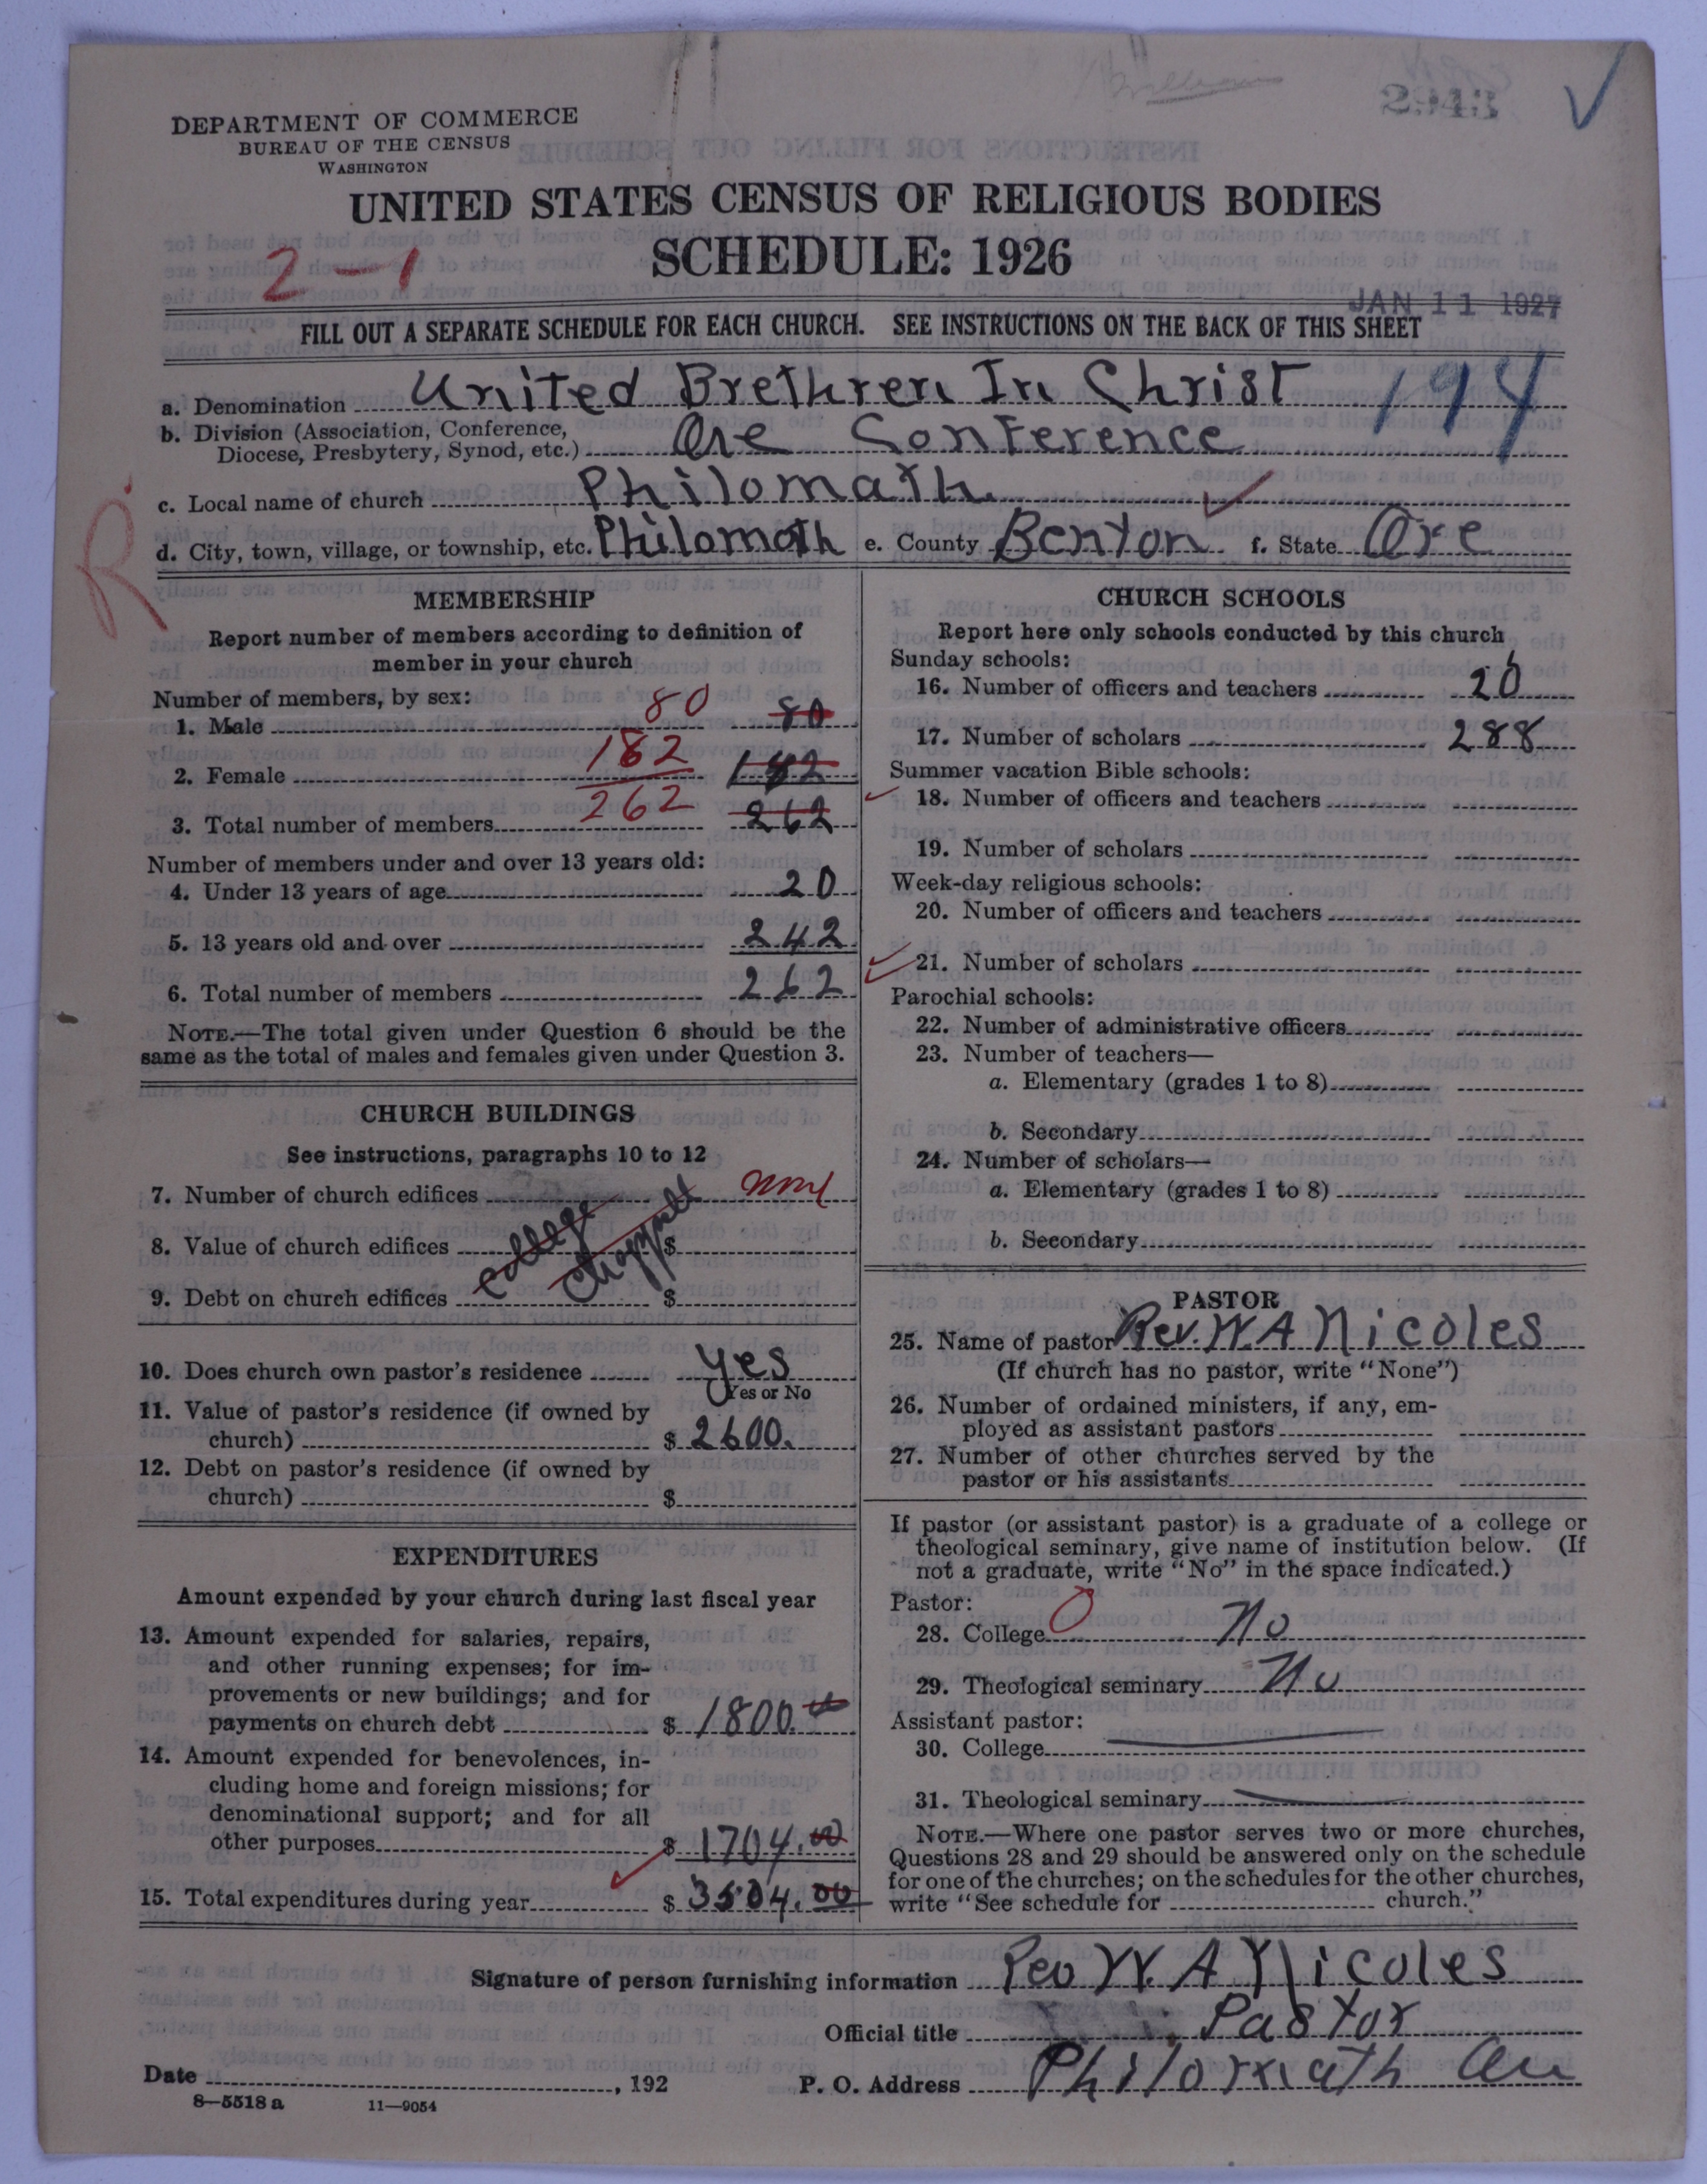 2943
DEPARTMENT OF COMMERCE
BUREAU OF THE CENSUS
WASHINGTON
UNITED STATES CENSUS OF RELIGIOUS BODIES
SCHEDULE: 1926
2-1
JAN 11 1927
FILL OUT A SEPARATE SCHEDULE FOR EACH CHURCH. SEE INSTRUCTIONS ON THE BACK OF THIS SHEET
a. Denomination United Brethren In Christ 194
b. Division (Association, Conference, Diocese, Presbytery, Synod, etc.) Ore Conference
c. Local name of church Philomath
R.
d. City, town, village, or township, etc. Philomath e. County Benton f. State Ore
MEMBERSHIP
Report number of members according to definition of
member in your church
Number of members, by sex:
1. Male 80 80
2. Female 182 182
3. Total number of members 262 262
Number of members under and over 13 years old:
4. Under 13 years of age 20
5. 13 years old and over 242
6. Total number of members 262
NOTE.—The total given under Question 6 should be the
same as the total of males and females given under Question 3.
CHURCH BUILDINGS
See instructions, paragraphs 10 to 12
7. Number of church edifices none
8. Value of church edifices $
college
9. Debt on church edifices $
10. Does church own pastor's residence yes
Yes or No
11. Value of pastor's residence (if owned by
church) $ 2600.
12. Debt on pastor's residence (if owned by
church) $
EXPENDITURES
Amount expended by your church during last fiscal year
13. Amount expended for salaries, repairs,
and other running expenses; for im-
provements or new buildings; and for
payments on church debt $ 1800.00
14. Amount expended for benevolences, in-
cluding home and foreign missions; for
denominational support; and for all
other purposes $ 1704.00
15. Total expenditures during year $ 3504.00
CHURCH SCHOOLS
Report here only schools conducted by this church
Sunday schools:
16. Number of officers and teachers 20
17. Number of scholars 288
Summer vacation Bible schools:
18. Number of officers and teachers
19. Number of scholars
Week-day religious schools:
20. Number of officers and teachers
21. Number of scholars
Parochial schools:
22. Number of administrative officers
23. Number of teachers—
a. Elementary (grades 1 to 8)
b. Secondary
24. Number of scholars—
a. Elementary (grades 1 to 8)
b. Secondary
PASTOR
25. Name of pastor Rev. W. A Nicoles
(If church has no pastor, write "None")
26. Number of ordained ministers, if any, em-
ployed as assistant pastors
27. Number of other churches served by the
pastor or his assistants
If pastor (or assistant pastor) is a graduate of a college or
theological seminary, give name of institution below. (If
not a graduate, write "No" in the space indicated.)
Pastor:
28. College 0 No
29. Theological seminary No
Assistant pastor:
30. College
31. Theological seminary
NOTE.—Where one pastor serves two or more churches,
Questions 28 and 29 should be answered only on the schedule
for one of the churches; on the schedules for the other churches,
write "See schedule for church."
Signature of person furnishing information Rev W. A Nicoles
Official title Pastor
Date , 192 P. O. Address Philomath
8—5518 a 11—9054